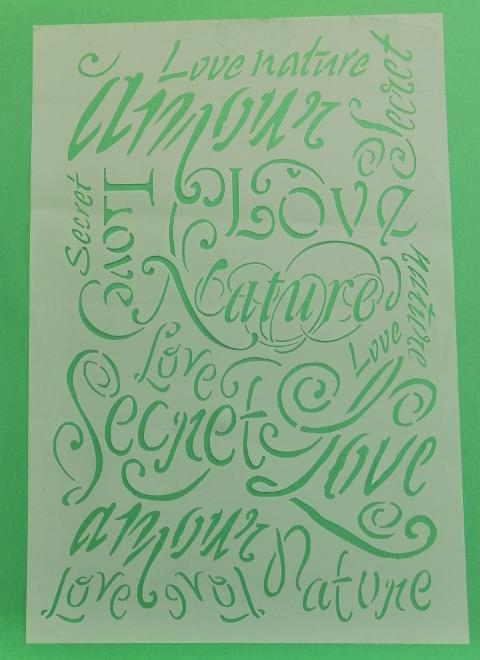 Love nature
amour
Secret
Secret
Love
Love
Nature
Love
nature
Love
Secret
Love
amour
Love
Love
Nature